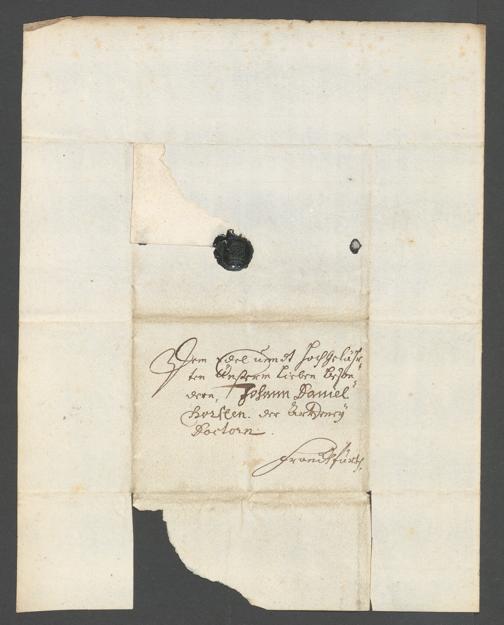 Dem Edel undt Hochgelähr-
ten Unserm lieben beson-
dern, Johann Daniel
Horsten. der Artzeney
Doctorn.
Franckfurth.